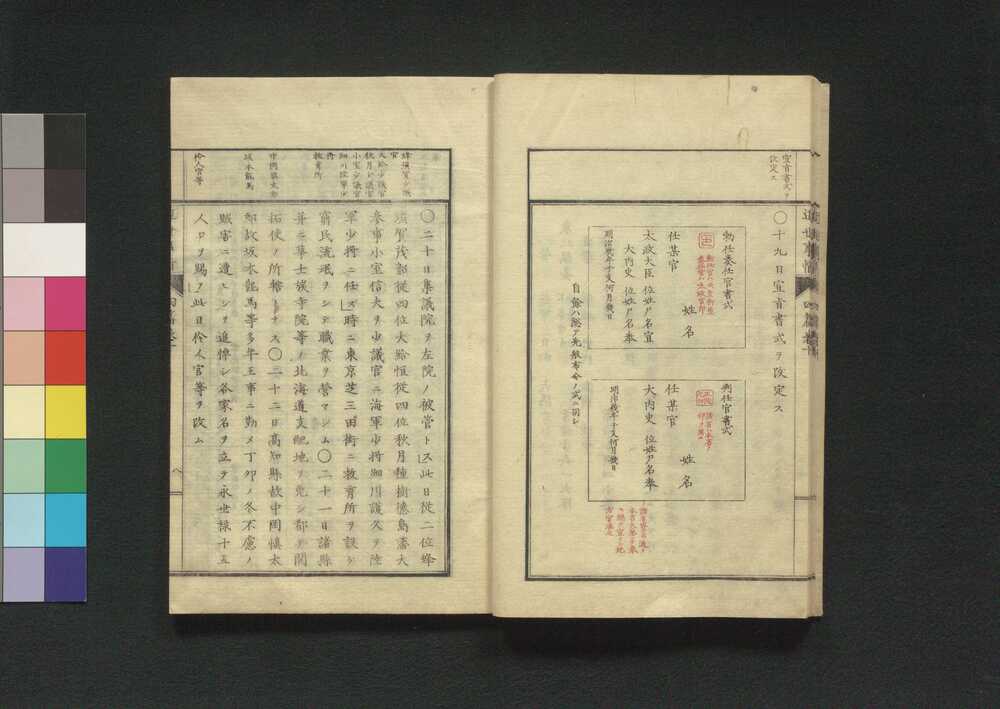 宣旨書式ヲ
改定ス
〇十九日宣旨書式ヲ改定ス
勅任奏任官書式
姓名
任某官
太政大臣 位姓尸名宣
大內史 位姓尸名奉
明治幾年干支何月幾日
判任官書式
姓名
任某官
大內史 位姓尸名奉
明治幾年干支何月幾日
自餘ハ總テ先般布令ノ式ニ同シ
蜂須賀少議
官
大給少議官
秋月少議官
小室少議官
細川陸軍少
將
教育所
中岡慎太郎
坂本龍馬
伶人官等
〇二十日集議院ヲ左院ノ被管トス此日從二位蜂
須賀茂韶從四位大給恒從四位秋月種樹德島藩大
參事小室信夫ヲ少議官ニ海軍少將細川護久ヲ陸
軍少將ニ任ス時ニ東京芝三田街ニ教育所ヲ設ケ
窮民流氓ヲシテ職業ヲ營マシム〇二十一日諸縣
並ニ華士族寺院等ノ北海道支配地ヲ免シ都テ開
拓使ノ所轄トナス〇二十二日高知縣故中岡慎太
郎故坂本龍馬等多年王事ニ勤メ丁卯ノ冬不慮ノ
賊害ニ遭ヒシヲ追悼シ各家名ヲ立テ永世祿十五
人口ヲ賜フ此日伶人官等ヲ改ム